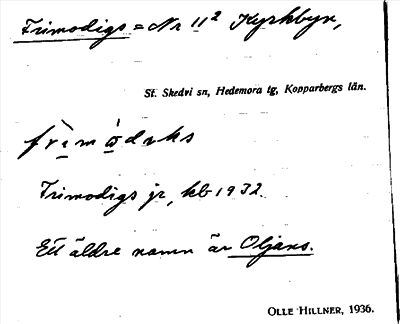 Frimodigs = Nr 11² Kyrkbyn,
St. Skedvi sn, Hedemora tg, Kopparbergs län.
frìmὼdıks
Frimodigs jr, kb 1932.
Ett äldre namn är Oljans.
OLLE HILLNER, 1936.